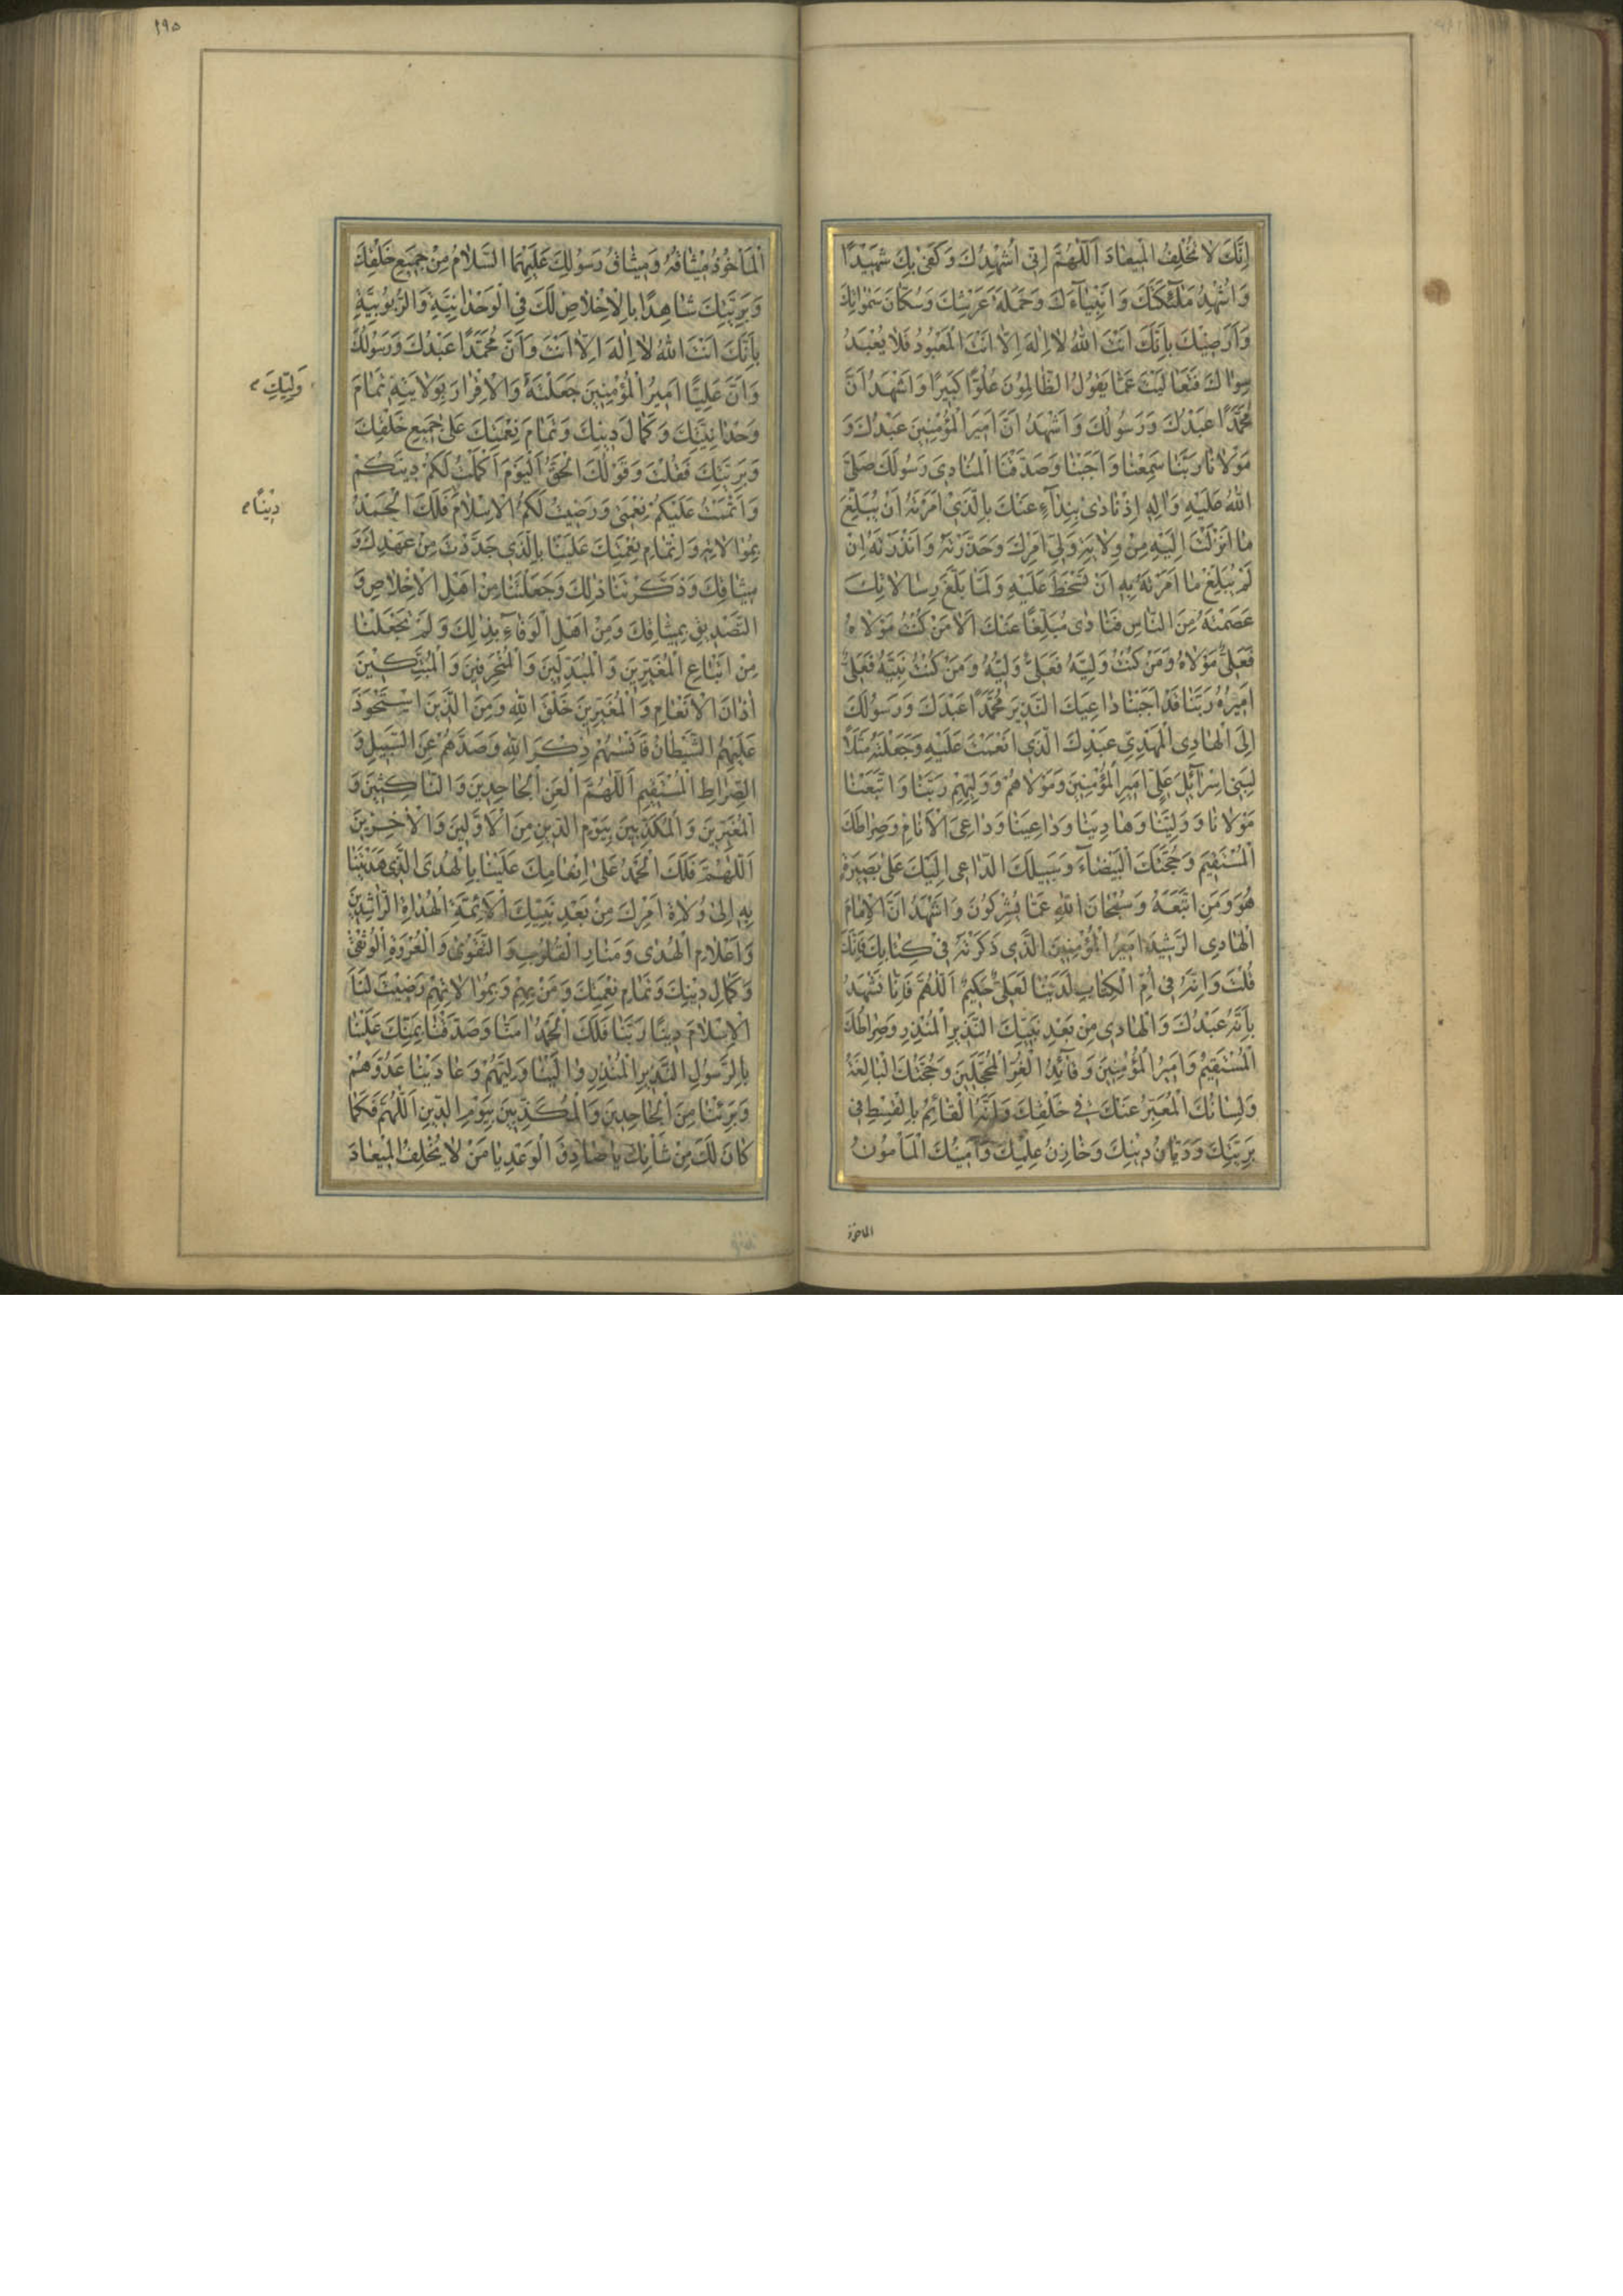 اِنَّكَ لا تُخْلِفُ الْميعادَ اَللّهُمَّ اِنّى اُشْهِدُكَ وَ كَفى بِكَ شَهيدًا
وَ اُشْهِدُ مَلٰٓئِكَتَكَ وَ اَنْبِيآءَكَ وَ حَمَلَةَ عَرْشِكَ وَ سُكّانَ سَمٰواتِكَ
وَ اَرَضيكَ بِاَنَّكَ اَنْتَ اللهُ لا اِلهَ اِلّا اَنْتَ الْمَعْبُودُ فَلا يُعْبَدُ
سِواكَ فَتَعالَيْتَ عَمّا يَقُولُ الظّالِمُونَ عُلُوًّا كَبيرًا وَ اَشْهَدُ اَنَّ
مُحَمَّدًا عَبْدُكَ وَ رَسُولُكَ وَ اَشْهَدُ اَنَّ اَميرَ الْمُؤْمِنينَ عَبْدُكَ وَ
مَوْلانا رَبَّنا سَمِعْنا وَ اَجَبْنا وَ صَدَّقْنَا الْمُنادِىَ رَسُولَكَ صَلَّى
اللهُ عَلَيْهِ وَ الِهِ اِذْ نادى بِنِدآءٍ عَنْكَ بِالَّذى اَمَرْتَهُ اَنْ يُبَلِّغَ
ما اَنْزَلْتَ اِلَيْهِ مِنْ وِلايَةِ وَلِىِّ اَمْرِكَ وَ حَذَّرْتَهُ وَ اَنْذَرْتَهُ اِنْ
لَمْ يُبَلِّغْ ما اَمَرْتَهُ بِهِ اَنْ تَسْخَطَ عَلَيْهِ وَ لَمّا بَلَّغَ رِسالاتِكَ
عَصَمْتَهُ مِنَ النّاسِ فَنادى مُبَلِّغًا عَنْكَ اَلا مَنْ كُنْتُ مَوْلاهُ
فَعَلِىٌّ مَوْلاهُ وَ مَنْ كُنْتُ وَلِيَّهُ فَعَلِىٌّ وَلِيُّهُ وَ مَنْ كُنْتُ نَبِيَّهُ فَعَلِىٌّ
اَميرُهُ رَبَّنا قَدْ اَجَبْنا داعِيَكَ النَّذيرَ مُحَمَّدًا عَبْدَكَ وَ رَسُولَكَ
اِلَى الْهادِى الْمَهْدِىِّ عَبْدِكَ الَّذى اَنْعَمْتَ عَلَيْهِ وَ جَعَلْتَهُ مَثَلًا
لِبَنى اِسْرآئيلَ عَلِىٍّ اَميرِ الْمُؤْمِنينَ وَ مَوْلاهُمْ وَ وَلِيِّهِمْ رَبَّنا وَ اتَّبَعْنا
مَوْلانا وَ وَلِيَّنا وَ هادِيَنا وَ داعِيَنا وَ داعِىَ الْاَنامِ وَ صِراطَكَ
الْمُسْتَقيمَ وَ حُجَّتَكَ الْبَيْضآءَ وَ سَبيلَكَ الدّاعِى اِلَيْكَ عَلى بَصيرَةٍ
هُوَ وَ مَنِ اتَّبَعَهُ وَ سُبْحانَ اللهِ عَمّا يُشْرِكُونَ وَ اَشْهَدُ اَنَّ الْاِمامَ
الْهادِىَ الرَّشيدَ اَميرُ الْمُؤْمِنينَ الَّذى ذَكَرْتَهُ فى كِتابِكَ فَاِنَّكَ
قُلْتَ وَ اِنَّهُ فى اُمِّ الْكِتابِ لَدَيْنا لَعَلِىٌّ حَكيمٌ اَللّهُمَّ فَاِنّا نَشْهَدُ
بِاَنَّهُ عَبْدُكَ وَ الْهادى مِنْ بَعْدِ نَبِيِّكَ النَّذيرِ الْمُنْذِرِ وَ صِراطُكَ
الْمُسْتَقيمُ وَ اَميرُ الْمُؤْمِنينَ وَ قآئِدُ الْغُرِّ الْمُحَجَّلينَ وَ حُجَّتُكَ الْبالِغَةُ
وَ لِسانُكَ الْمُعَبِّرُ عَنْكَ فى خَلْقِكَ وَ اَنَّهُ الْقآئِمُ بِالْقِسْطِ فى
بَرِيَّتِكَ وَ دَيّانُ دينِكَ وَ خازِنُ عِلْمِكَ وَ اَمينُكَ الْمَاْمُونُ
الماخوذ
١٩٥
الْمَاْخُوذُ ميثاقُهُ وَ ميثاقُ رَسُولِكَ عَلَيْهِمَا السَّلامُ مِنْ جَميعِ خَلْقِكَ
وَ بَرِيَّتِكَ شاهِدًا بِالْاِخْلاصِ لَكَ فِى الْوَحْدانِيَّةِ وَ الرُّبُوبِيَّةِ
بِاَنَّكَ اَنْتَ اللهُ لا اِلهَ اِلّا اَنْتَ وَ اَنَّ مُحَمَّدًا عَبْدُكَ وَ رَسُولُكَ
وَ اَنَّ عَلِيًّا اَميرُ الْمُؤْمِنينَ جَعَلْتَهُ وَ الْاِقْرارَ بِوَلايَتِهِ تَمامَ
وَلِيِّكَ
وَحْدانِيَّتِكَ وَ كَمالَ دينِكَ وَ تَمامَ نِعْمَتِكَ عَلى جَميعِ خَلْقِكَ
وَ بَرِيَّتِكَ فَقُلْتَ وَ قَوْلُكَ الْحَقُّ اَلْيَوْمَ اَكْمَلْتُ لَكُمْ دينَكُمْ
وَ اَتْمَمْتُ عَلَيْكُمْ نِعْمَتى وَ رَضيتُ لَكُمُ الْاِسْلامَ فَلَكَ الْحَمْدُ
دينًا
بِمُوالاتِهِ وَ اِتْمامِ نِعْمَتِكَ عَلَيْنا بِالَّذى جَدَّدْتَ مِنْ عَهْدِكَ وَ
ميثاقِكَ وَ ذَكَّرْتَنا ذلِكَ وَ جَعَلْتَنا مِنْ اَهْلِ الْاِخْلاصِ وَ
التَّصْديقِ بِميثاقِكَ وَ مِنْ اَهْلِ الْوَفآءِ بِذلِكَ وَ لَمْ تَجْعَلْنا
مِنْ اَتْباعِ الْمُغَيِّرينَ وَ الْمُبَدِّلينَ وَ الْمُنْحَرِفينَ وَ الْمُبَتِّكينَ
اذانَ الْاَنْعامِ وَ الْمُغَيِّرينَ خَلْقَ اللهِ وَ مِنَ الَّذينَ اسْتَحْوَذَ
عَلَيْهِمُ الشَّيْطانُ فَاَنْسٰيهُمْ ذِكْرَ اللهِ وَ صَدَّهُمْ عَنِ السَّبيلِ وَ
الصِّراطِ الْمُسْتَقيمِ اَللّهُمَّ الْعَنِ الْجاحِدينَ وَ النّاكِثينَ وَ
الْمُغَيِّرينَ وَ الْمُكَذِّبينَ بِيَوْمِ الدّينِ مِنَ الْاَوَّلينَ وَ الْاخِرينَ
اَللّهُمَّ فَلَكَ الْحَمْدُ عَلى اِنْعامِكَ عَلَيْنا بِالْهُدَى الَّذى هَدَيْتَنا
بِهِ اِلى وُلاةِ اَمْرِكَ مِنْ بَعْدِ نَبِيِّكَ الْاَئِمَّةِ الْهُداةِ الرّاشِدينَ
وَ اَعْلامِ الْهُدى وَ مَنارِ الْقُلُوبِ وَ التَّقْوى وَ الْعُرْوَةِ الْوُثْقى
وَ كَمالِ دينِكَ وَ تَمامِ نِعْمَتِكَ وَ مَنْ بِهِمْ وَ بِمُوالاتِهِمْ رَضيتَ لَنَا
الْاِسْلامَ دينًا رَبَّنا فَلَكَ الْحَمْدُ امَنّا وَ صَدَّقْنا بِمَنِّكَ عَلَيْنا
بِالرَّسُولِ النَّذيرِ الْمُنْذِرِ والَيْنا وَلِيَّهُمْ وَ عادَيْنا عَدُوَّهُمْ
وَ بَرِئْنا مِنَ الْجاحِدينَ وَ الْمُكَذِّبينَ بِيَوْمِ الدّينِ اَللّهُمَّ فَكَما
كانَ لَكَ مِنْ شَاْنِكَ يا صادِقَ الْوَعْدِ يا مَنْ لا يُخْلِفُ الْميعادَ